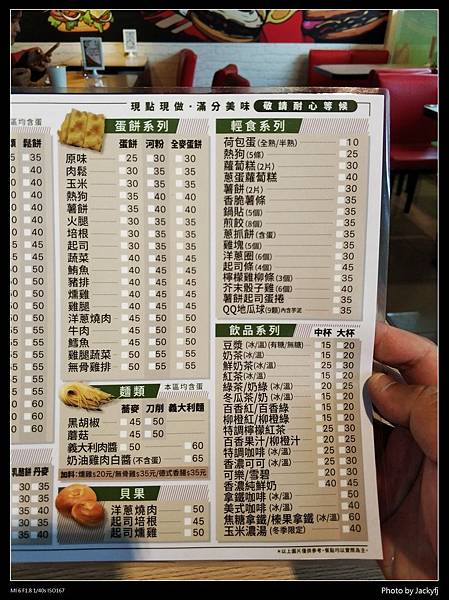 現點現做・滿分美味 敬請耐心等候
區均含蛋
鬆餅
蛋餅系列
蛋餅 河粉 全麥蛋餅
原味 25 30 30
肉鬆 30 35 35
玉米 30 35 35
熱狗 35 40 40
薯餅 35 40 40
火腿 30 35 35
培根 30 35 35
起司 30 35 35
蔬菜 40 45 45
鮪魚 40 45 45
豬排 40 45 45
燻雞 40 45 45
雞腿 40 45 45
洋蔥燒肉 40 45 45
牛肉 45 50 50
鱈魚 45 50 50
雞腿蔬菜 50 55 55
無骨雞排 50 55 55
麵類 本區均含蛋
蕎麥 刀削 義大利麵
黑胡椒 45 50
蘑菇 45 50
義大利肉醬 50 60
奶油雞肉白醬(不含蛋) 65
加料:燻雞$20元/無骨雞$35元/德式香腸$35元
貝果
洋蔥燒肉 50
起司培根 45
起司燻雞 50
輕食系列
荷包蛋(全熟/半熟) 10
熱狗(5條) 25
蘿蔔糕(2片) 30
蔥蛋蘿蔔糕 40
薯餅(2片) 30
香脆薯條 35
鍋貼(5個) 35
煎餃(8個) 35
蔥抓餅(含蛋) 35
雞塊(5個) 35
洋蔥圈(6個) 30
起司條(4個) 45
檸檬雞柳條(3個) 35
芥末骰子雞(6個) 40
薯餅起司蛋捲 35
QQ地瓜球(9顆)內含芋泥 35
飲品系列 中杯 大杯
豆漿(冰/溫)(有糖/無糖) 15 20
奶茶(冰/溫) 15 20
鮮奶茶(冰/溫)
紅茶(冰/溫) 15 20
綠茶/奶綠(冰/溫) 20 25
冬瓜茶/奶(冰/溫)
百香紅/百香綠
柳橙紅/柳橙綠
特調檸檬紅茶
百香果汁/柳橙汁
特調咖啡(冰/溫)
香濃可可(冰/溫)
可樂/雪碧
香濃純鮮奶
拿鐵咖啡(冰/溫) 50
美式咖啡(冰/溫) 40
焦糖拿鐵/榛果拿鐵(冰/溫) 60
玉米濃湯(冬季限定) 40
*以上圖片僅供參考,餐點均以實際為主*
MI 6 F1.8 1/40s ISO167
Photo by Jackyfj